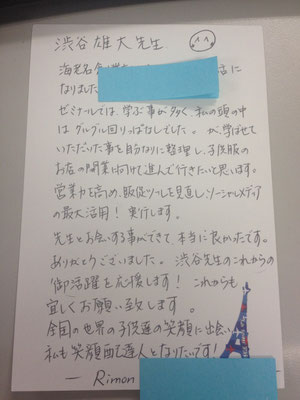 渋谷雄大先生
海老名
になりました
ゼミナールでは、学ぶ事が多く、私の頭の中
は グルグル回りっぱなしでした。が、学ばせて
いただいた事を自分なりに整理し、子供服の
お店の開業に向けて進んで行きたいと思います。
営業力を高め、販促ツールを見直し、ソーシャルメディア
の最大活用! 実行します。
先生とお会いする事ができて 本当に良かったです。
ありがとうございました。渋谷先生のこれからの
御活躍を応援します! これからも
宜しくお願い致します。
全国の世界の子供達の笑顔に出会い
私も笑顔配達人となりたいです!
— Rimon